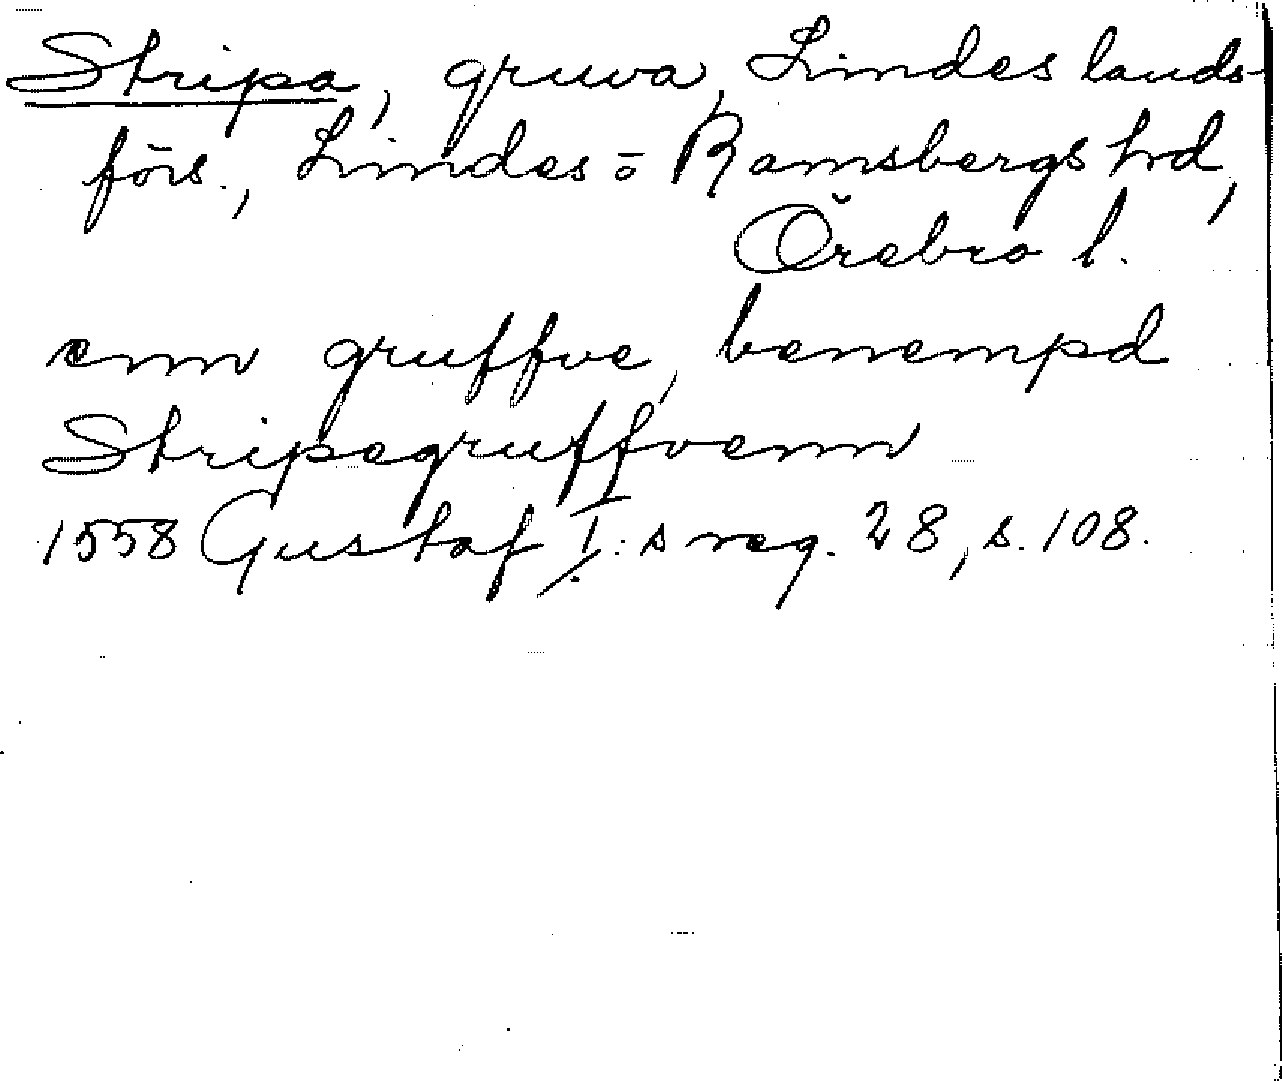 Stripa, gruva, Lindes lands-
förs., Lindes o Ramsbergs hd,
Örebro l.
enn gruffve, benempd
Stripegruffvenn
1558 Gustaf I:s reg. 28, s. 108.